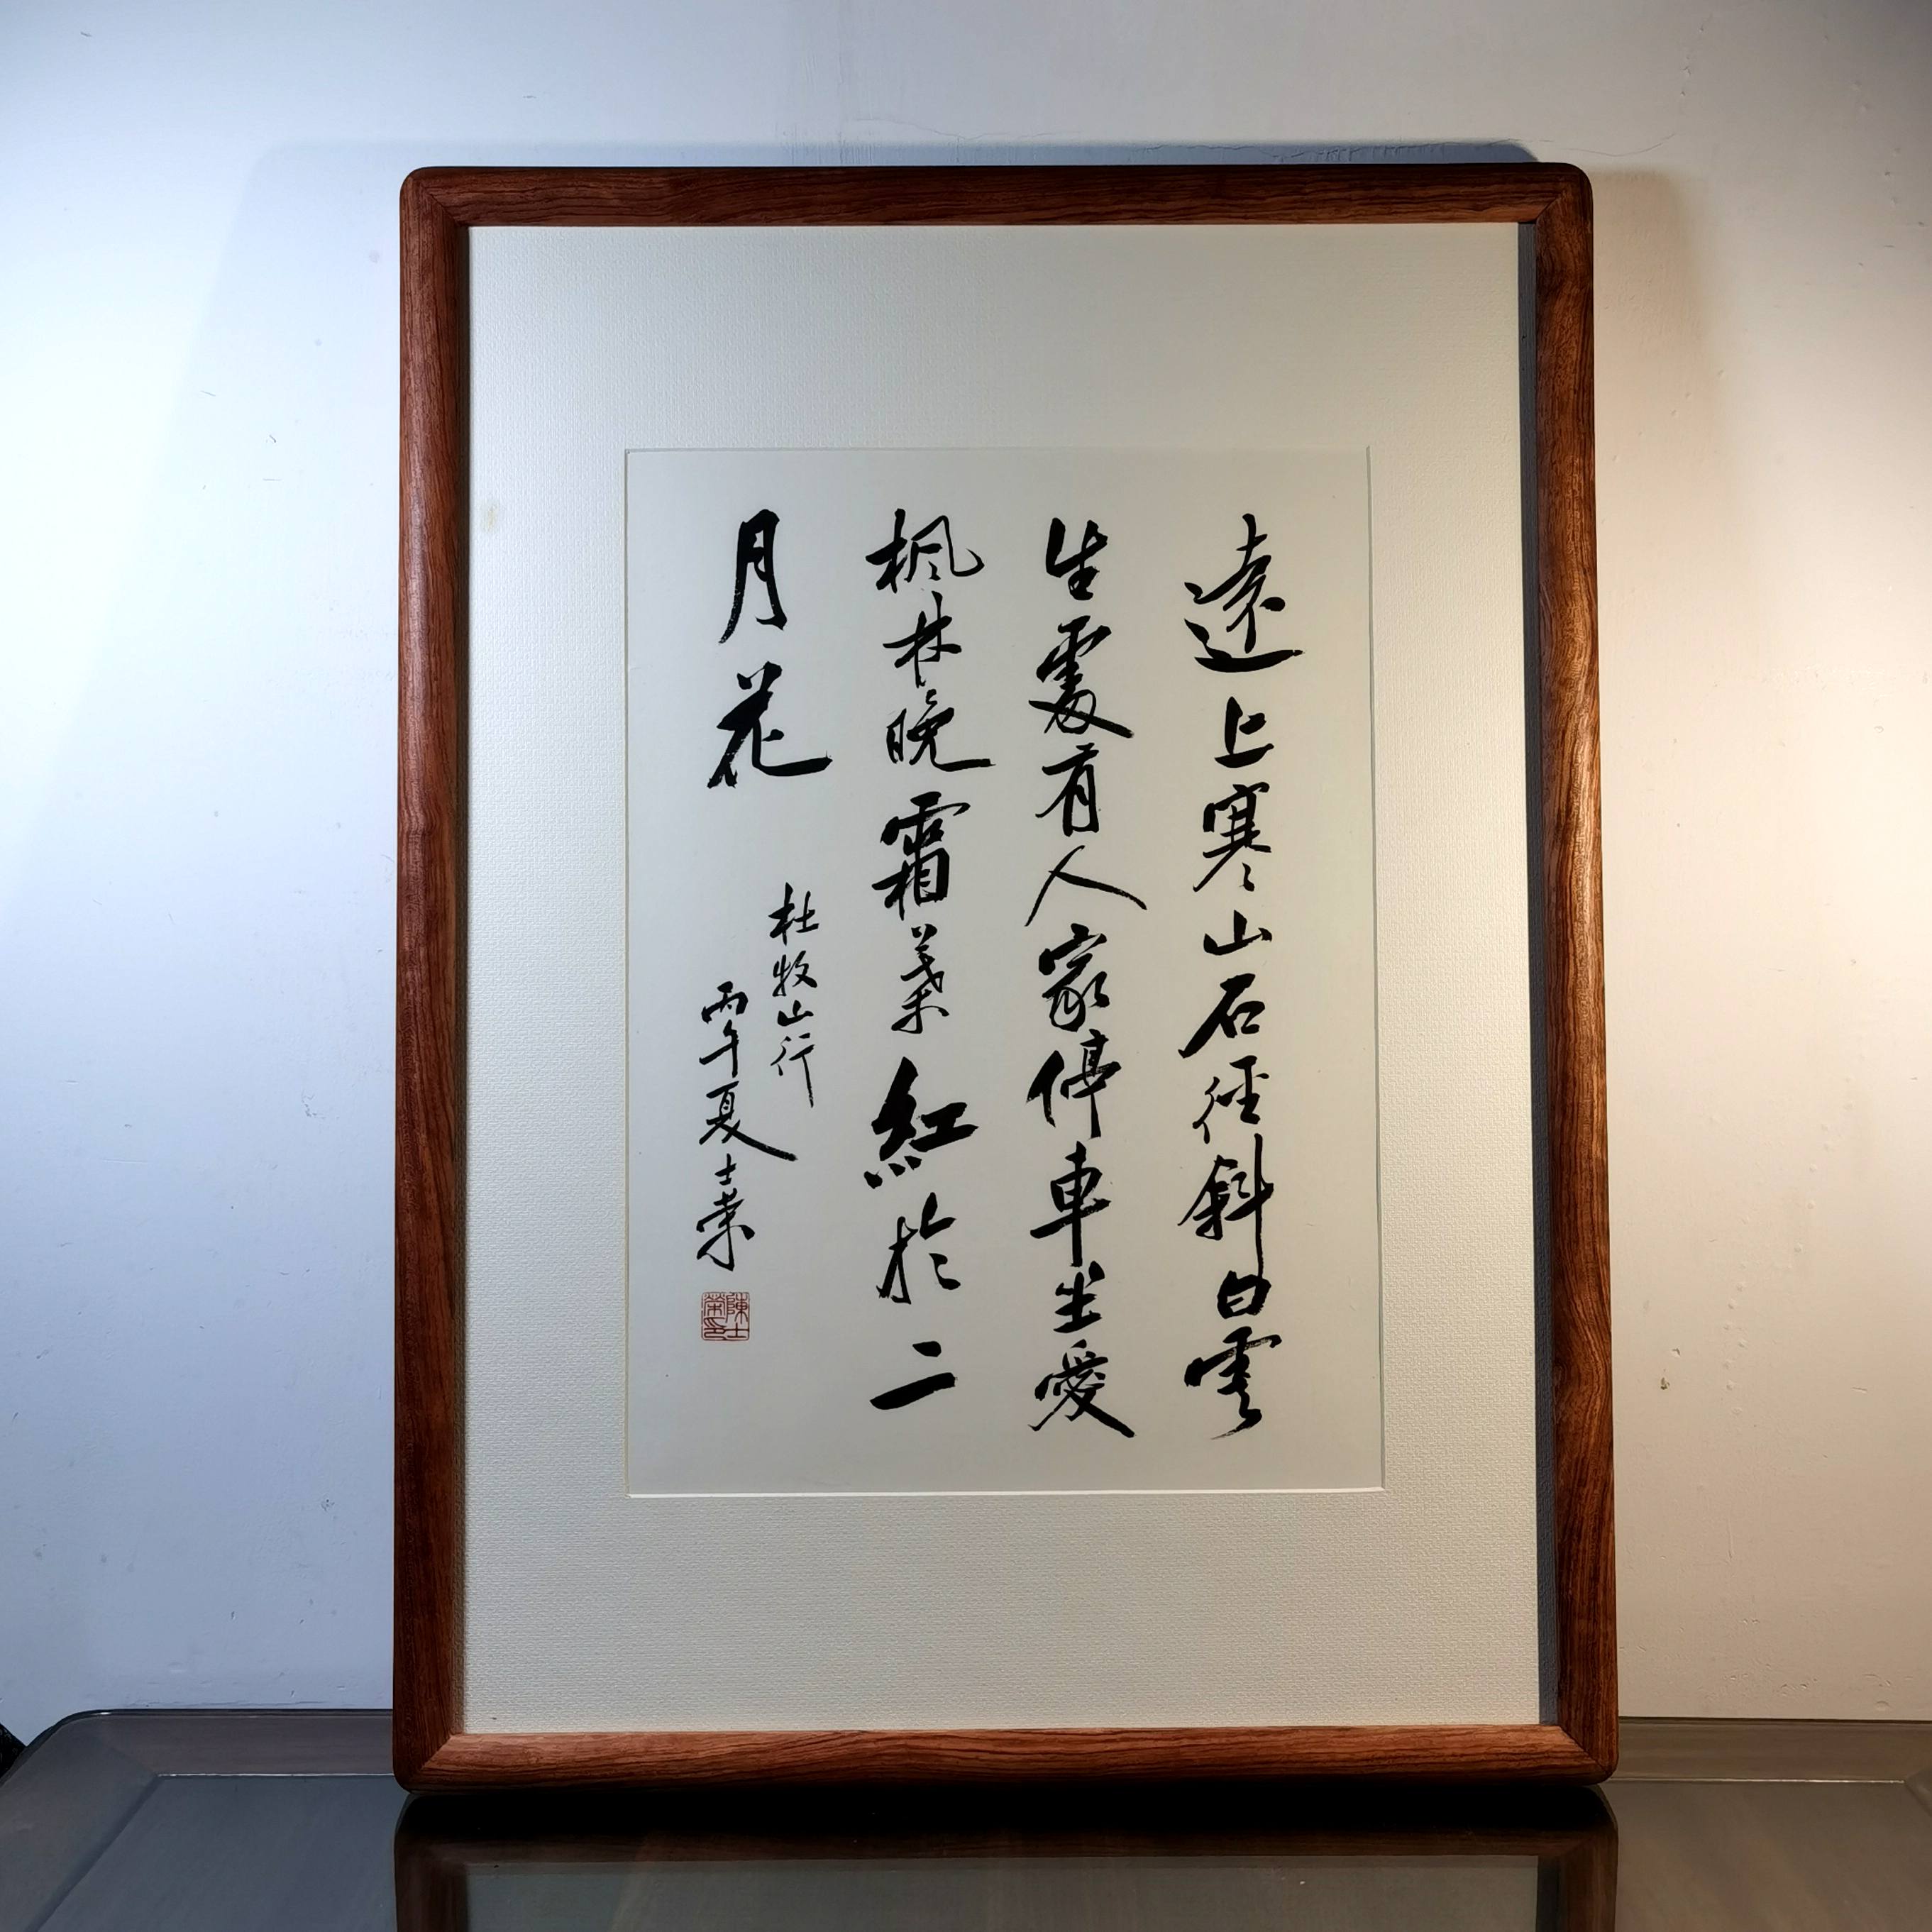 遠上寒山石徑斜白雲
生處有人家停車坐愛
楓林晚霜葉紅於二
月花
杜牧山行
丙午夏士榮
陳士榮印